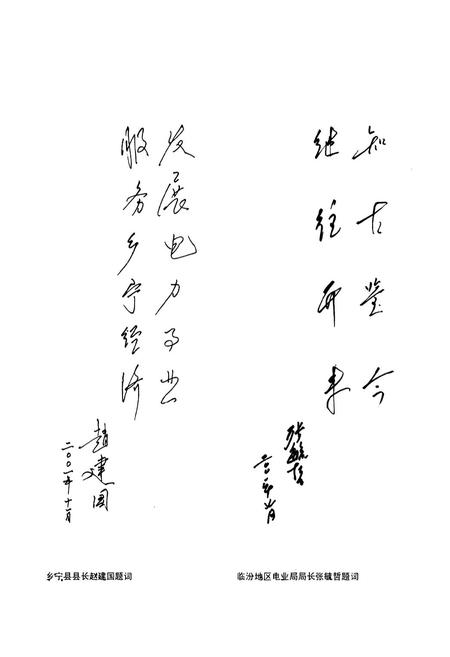 知古鉴今
继往开来
张毓哲
发展电力事业
服务乡宁经济
赵建国
二〇〇一年十一月
乡宁县县长赵建国题词
临汾地区电业局局长张毓哲题词